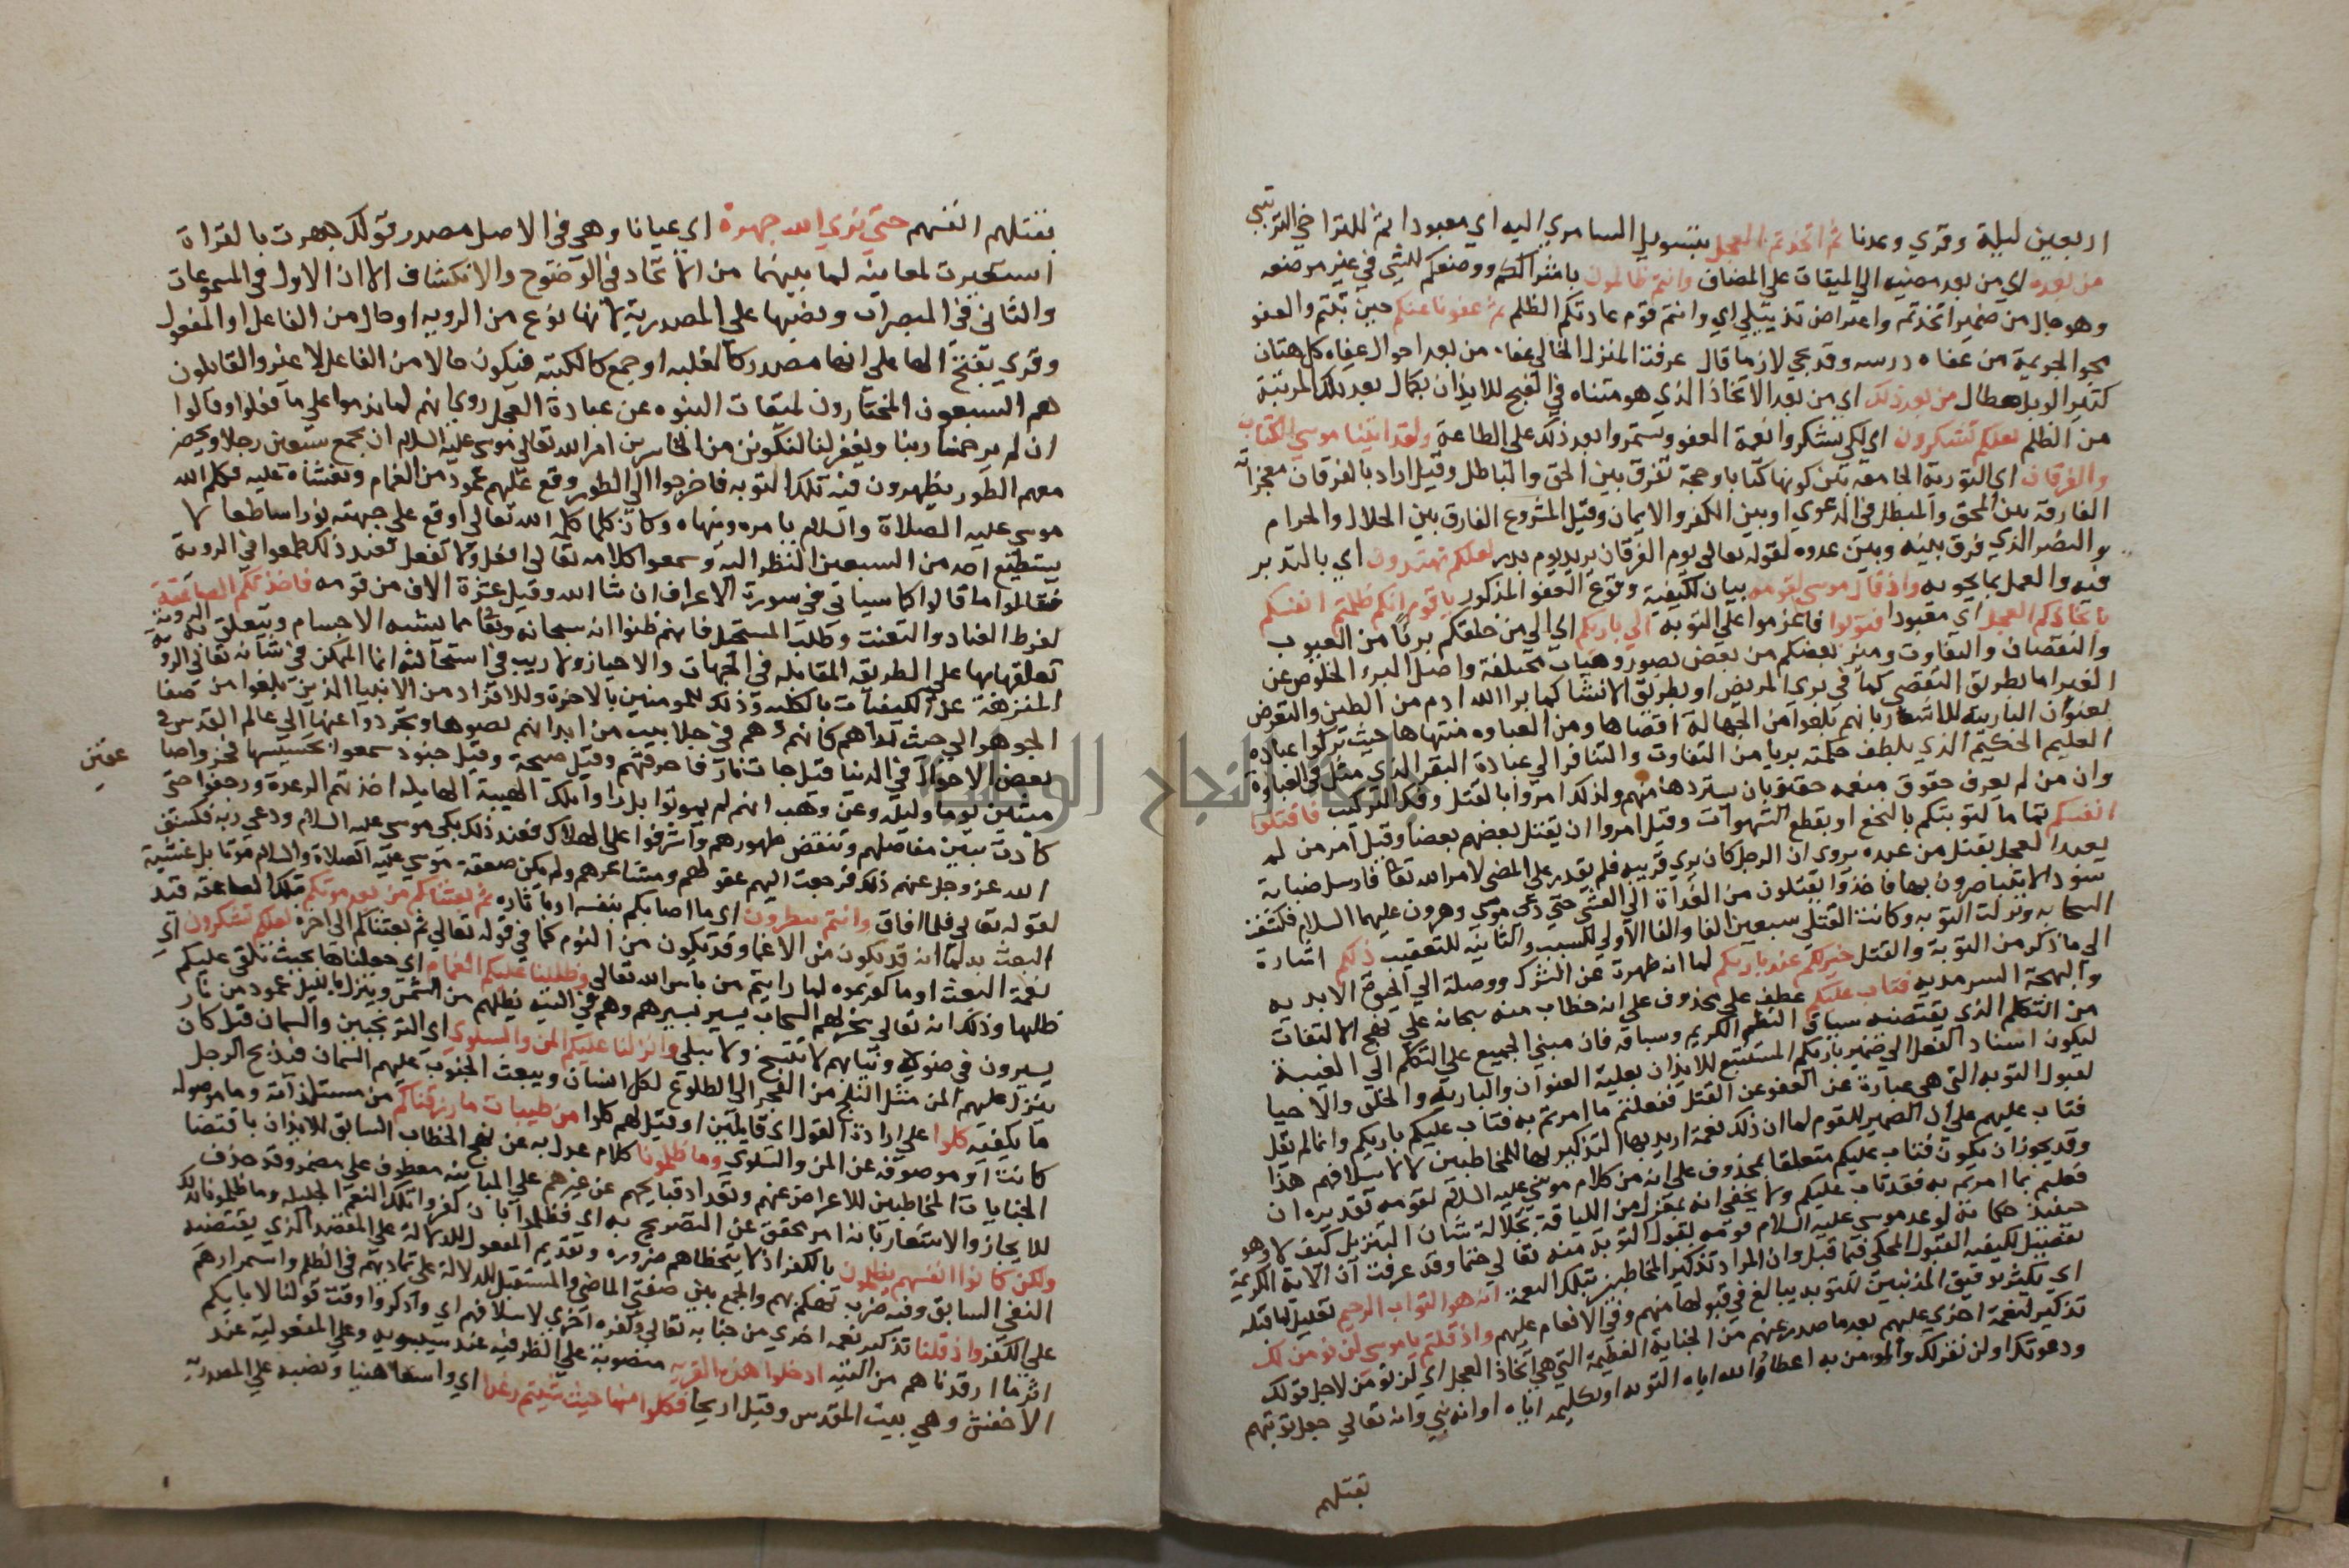 اربعين ليلة وقري وعدنا ثم اتخذتم العجل بتسويل السامري اليه اي معبودا ثم للتراخي الرتبي
من بعده اي من بعد مضيه الي الميقات علي المضاف وانتم ظالمون باشراككم ووضعكم للشي في غير موضعه
وهو حال من ضمير اتخذتم واعتراض تذييلي اي وانتم قوم عادتكم الظلم ثم عفونا عنكم حين تبتم والعفو
محو الجريمة من عفاه درسه وقد يجي لازما قال عرفت المنزل الخالي عفا من بعد احوال عفاه كل هتان
كثير الوبل هطال من بعد ذلك اي من بعد الاتخاذ الذي هو متناه في القبح للايذان بكمال بعد تلك المرتبة
من الظلم لعلكم تشكرون اي لكي تشكروا نعمة العفو وتستمروا بعد ذلك علي الطاعة ولقد اتينا موسي الكتاب
والفرقان اي التورية الجامعة بين كونها كتابا وحجة تفرق بين الحق والباطل وقيل اراد بالفرقان معجزاته
الفارقة بين المحق والمبطل في الدعوي او بين الكفر والايمان وقيل الشرع الفارق بين الحلال والحرام
والنصر الذي فرق بينه وبين عدوه لقوله تعالي يوم الفرقان يريد يوم بدر لعلكم تهتدون اي بالتدبر
فيه والعمل بما يحويه واذ قال موسي لقومه بيان لكيفية وقوع العفو المذكور يا قوم انكم ظلمتم انفسكم
باتخاذكم العجل اي معبودا فتوبوا فاعزموا علي التوبة الي باريكم اي الي من خلقكم بريا من العيوب
والنقصان والتفاوت وميز بعضكم من بعض بصور وهيات مختلفة واصل البرء الخلوص عن
الغير اما بطريق التفصي كما في بري المريض او بطريق الانشا كما برا الله ادم من الطين والتعرض
لعنوان البارية للاشعار بانهم بلغوا من الجهالة اقصاها ومن الغباوه منتهاها حيث تركوا عبادة
العليم الحكيم الذي بلطف حكمته بريا من التفاوت والتنافر الي عبادة البقر الذي مثل في الغباوة
وان من لم يعرف حقوق منعمه حقيق بان يسترد ها منهم ولذلك امروا بالقتل وفك التركيب فاقتلوا
انفسكم تماما لتوبتكم بالبخع او بقطع الشهوات وقيل امروا ان يقتل بعضهم بعضا وقيل امر من لم
يعبد العجل بقتل من عبده يروي ان الرجل كان يري قريبه فلم يقدر علي المضي لامر الله تعالي فارسل ضبابة
سودا لا يتباصرون بها فاخذوا يقتلون من الغداة الي العشي حتي دعي موسي وهرون عليهما السلام فكشفت
السحابة ونزلت التوبه وكانت القتلي سبعين الفا والفا الاولي للسبب والثانية للتعقيب ذلكم اشارة
الي ما ذكر من التوبة والقتل خير لكم عند باريكم لما انه طهرة عن الشرك ووصلة الي الحيوة الابديه
والبهجة السرمديه فتاب عليكم عطف علي محذوف علي انه خطاب منه سبحانه علي نهج الالتفات
من التكلم الذي يقتضيه سباق النظم الكريم وسياقه فان مبني الجميع علي التكلم الي الغيبة
ليكون اسناد الفعل الي ضمير باريكم المستتبع للايذان بعلية العنوان والبارية والخلق والاحيا
لقبول التوبة التي هي عبارة عن العفو عن القتل ففعلتم ما امرتم به فتاب عليكم باريكم وانما لم يقل
فتاب عليهم علي ان الضمير للقوم لما ان ذلك نعمة اريد بها التذكير بها للمخاطبين لا لاسلافهم هذا
وقد يجوز ان يكون فتاب عليكم متعلقا بمحذوف علي انه من كلام موسي عليه السلام لقومه تقديره ان
فعلتم بما امرتم به فقد تاب عليكم ولا يخفي انه بمعزل من اللياقة بجلالة شان التنزيل كيف لا وهو
حينيذ حكاية لوعد موسي عليه السلام قومه بقبول التوبة منه تعالي حتما وقد عرفت ان الاية الكريمة
تفصيل لكيفية القبول المحكي فيما قبل وان المراد تذكير المخاطبين بتلك النعمة انه هو التواب الرحيم تعليل لما قبله
اي يكثر توفيق المذنبين للتوبة ويبالغ في قبولها منهم وفي الانعام عليهم واذ قلتم يا موسي لن نومن لك
تذكير لنعمة اخري عليهم بعد ما صدر عنهم من الجناية العظيمة التي هي اتخاذ العجل اي لن نومن لاجل قولك
ودعوتك او لن نقر لك والمومن به اعطاؤ الله اياه التوبه او تكليمه اياه او انه نبي وانه تعالي جعل توبتهم
بقتلهم
بقتلهم انفسهم حتي نري الله جهرة اي عيانا وهي في الاصل مصدر قولك جهرت بالقراة
استعيرت لمعاينه لما بينهما من الاتحاد في الوضوح والانكشاف الا ان الاول في المسموعات
والثاني في المبصرات ونصبها علي المصدرية لانها نوع من الرويه او حال من الفاعل او المفعول
وقري بفتح الها علي انها مصدر كالغلبه او جمع كالكتبه فيكون حالا من الفاعل لا غير والقايلون
هم السبعون المختارون لميقات التوبه عن عبادة العجل روي انهم لما ندموا علي ما فعلوا وقالوا
ان لم يرحمنا ربنا ويغفر لنا لنكونن من الخاسرين امر الله تعالي موسي عليه السلام ان يجمع سبعين رجلا ويحضر
معهم الطور يظهرون فيه تلك التوبه فاخرجوا الي الطور وقع عليهم عمود من الغمام وتغشاه عليه فكلم الله
موسي عليه الصلاة والسلام يامره وينهاه وكان كلما كلمه الله تعالي اوقع علي جبهته نورا ساطعا لا
يستطيع احد من السبعين النظر اليه وسمعوا كلامه تعالي افعل ولا تفعل فعند ذلك طمعوا في الروية
فقالوا ما قالوا كما سياتي في سورة الاعراف ان شا الله وقيل عشرة الاف من قومه فاخذتكم الصاعقة
لفرط العناد والتعنت وطلب المستحيل فانهم ظنوا انه سبحانه وتعا مما يشبه الاجسام ويتعلق به الروية
تعلقها بها علي الطريقه المقابله في الجهات والاحياز ولا ريب في استحالته انما الممكن في شانه تعالي الروية
المنزهة عن الكيفيات بالكليه وذلك للمومنين بالاخرة وللافراد من الانبيا الذين بلغوا من صفا
الجوهر الي حيث تراهم كانهم وهم في جلابيب من ابدانهم نضوها وتجردوا عنها الي عالم القدس في
بعض الاحوال في الدنيا قيل جات نار فاحرقتهم وقيل صيحة وقيل جنود سمعوا بحسيسها فخروا صا
عقين
ميتين يوما وليله وعن وهب انهم لم يموتوا بل لما راوا تلك الهيبة الهايله اخذتهم الرعدة ورجفوا حتي
كادت تبين مفاصلهم وتنقض ظهورهم واشرفوا علي الهلاك فعند ذلك بكي موسي عليه السلام ودعي ربه فكشف
الله عز وجل عنهم ذلك فرجعت اليهم عقولهم ومشاعرهم ولم يكن صعقة موسي عليه الصلاة والسلام موتا بل غشية
لقوله تعالي فلما افاق وانتم تنظرون اي ما اصابكم بنفسه او باثاره ثم بعثناكم من بعد موتكم بتلك الصاعقه قيد
البعث به لما انه قد يكون من الاغما وقد يكون من النوم كما في قوله تعالي ثم بعثناكم الي اخره لعلكم تشكرون اي
نعمة البعث او ما كفرتموه لما رايتم من باس الله تعالي وظللنا عليكم الغمام اي جعلناها بحيث تلقي عليكم
ظلها وذلك انه تعالي سخر لهم السحاب يسير بسيرهم وهم في التيه يظلهم من الشمس وينزل بالليل عمود من نار
يسيرون في ضوئه وثيابهم لا تتسخ ولا تبلي وانزلنا عليكم المن والسلوي اي الترنجبين والسمان قيل كان
ينزل عليهم المن مثل الثلج من الفجر الي الطلوع لكل انسان ويبعث الجنوب عليهم السمان فيذبح الرجل
ما يكفيه كلوا علي ارادة القول اي قايلين او قيل لهم كلوا من طيبات ما رزقناكم من مستلذاته وما موصوله
كانت او موصوفه عن المن والسلوي وما ظلمونا كلام عدل به عن نهج الخطاب السابق للايذان باقتضا
الجنايات المخاطبين للاعراض عنهم وتعداد قبايحهم عن غيرهم علي المباينه معطوف علي مضمر وقد حذف
للايجاز والاشعار بانه امر محقق عن التصريح به اي فظلموا بان كفروا تلك النعم الجليله وما ظلمونا بذلك
ولكن كانوا انفسهم يظلمون بالكفر اذ لا يتخطاهم ضروره وتقديم المفعول للدلالة علي القصد الذي يقتضيه
النفي السابق وفيه ضرب تهكم بهم والجمع بين صيغتي الماضي والمستقبل للدلالة علي تماديهم في الظلم واستمرارهم
علي الكفر واذ قلنا تذكير نعمه اخري من جنابه تعالي وكفره اخري لاسلافهم اي واذكروا وقت قولنا لابايكم
اثر ما انقذناهم من التيه ادخلوا هذه القريه منصوبة علي الظرفيه عند سيبويه وعلي المفعولية عند
الاخفش وهي بيت المقدس وقيل اريحا فكلوا منها حيث شيتم رغدا اي واسعا هنيا ونصبه علي المصدريه